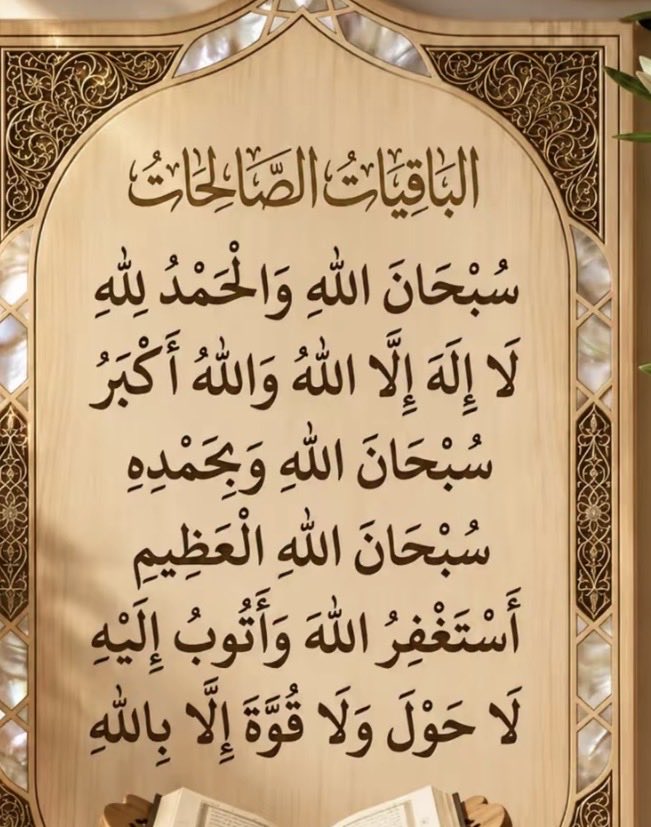 الْبَاقِيَاتُ الصَّالِحَاتُ
سُبْحَانَ اللهِ وَالْحَمْدُ لِلهِ
لَا إِلَهَ إِلَّا اللهُ وَاللهُ أَكْبَرُ
سُبْحَانَ اللهِ وَبِحَمْدِهِ
سُبْحَانَ اللهِ الْعَظِيمِ
أَسْتَغْفِرُ اللهَ وَأَتُوبُ إِلَيْهِ
لَا حَوْلَ وَلَا قُوَّةَ إِلَّا بِاللهِ